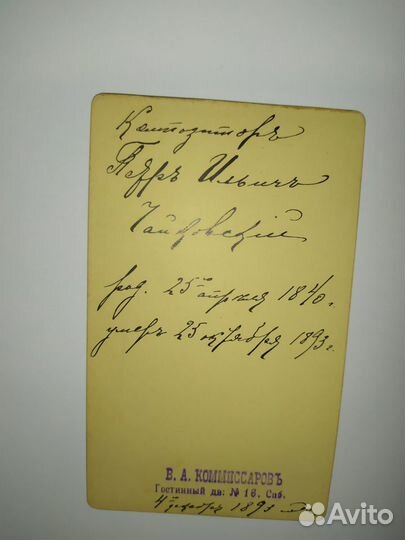 Композиторъ
Петръ Ильичъ
Чайковский
род. 25го апреля 1840 г.
умеръ 25 октября 1893 г.
В. А. КОММИССАРОВЪ
Гостинный дв: № 16, Спб.
4 декабрь 1893
Avito